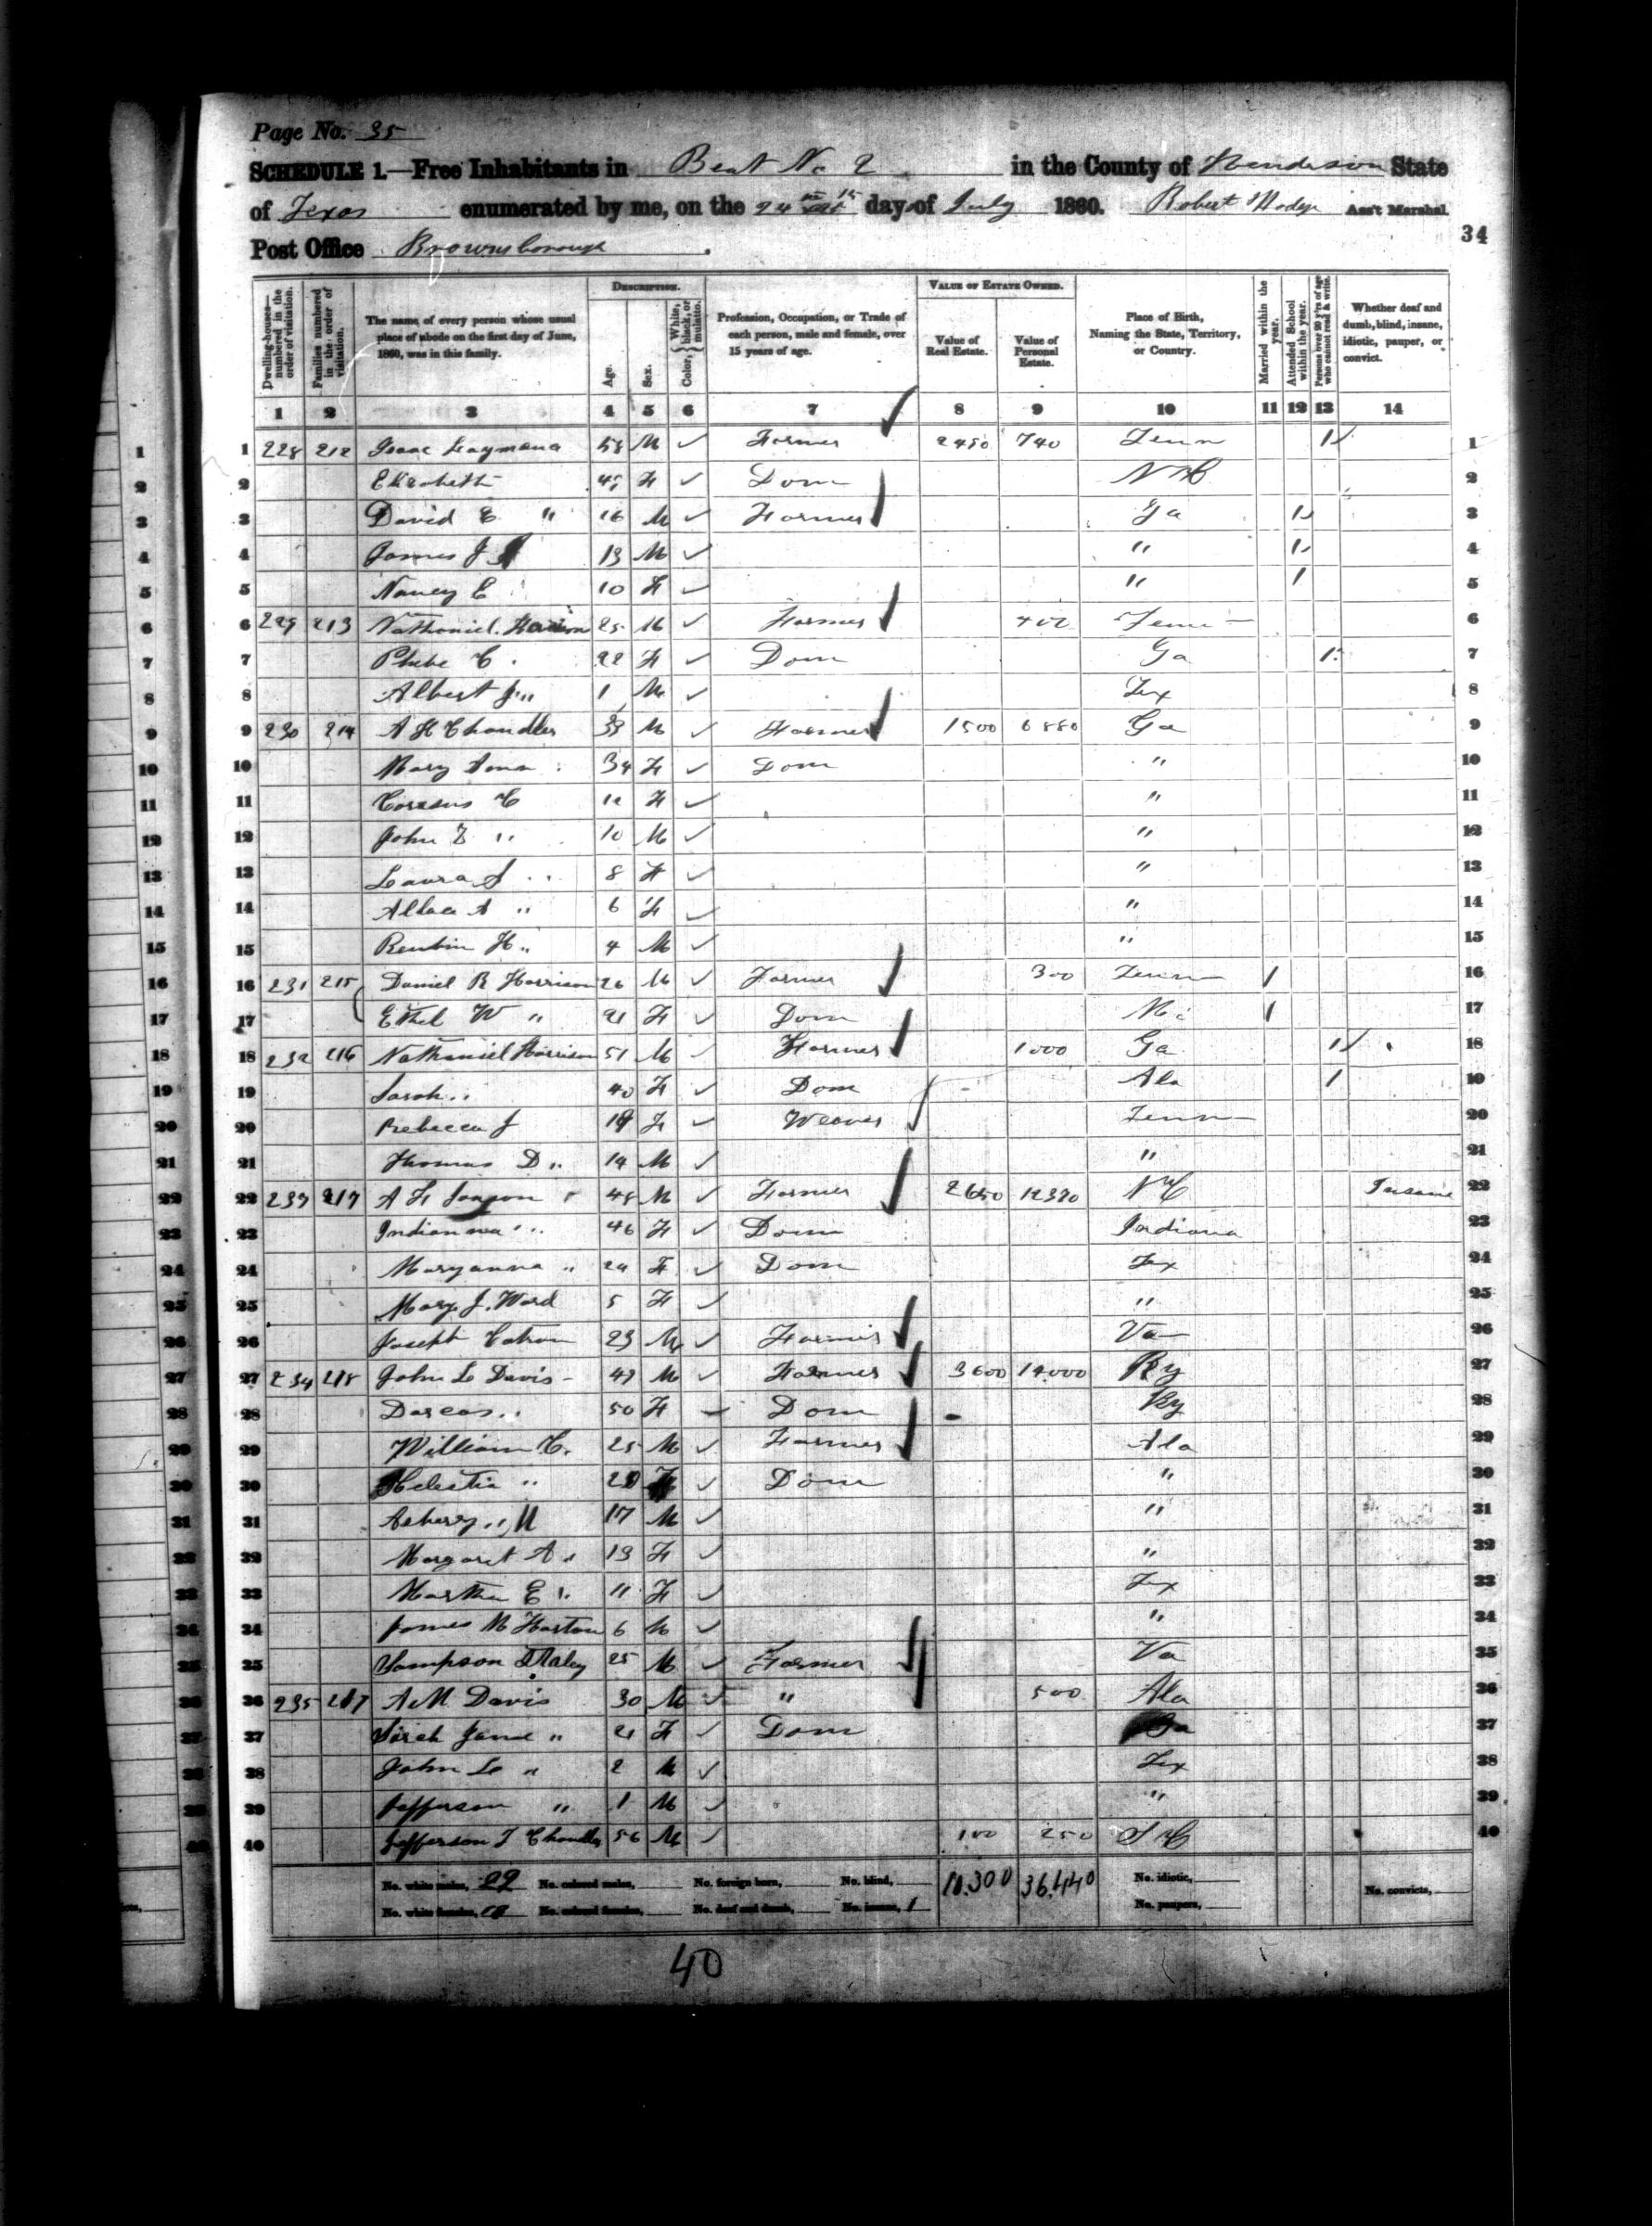 Page No. 35
SCHEDULE 1.—Free Inhabitants in Beat No 2 in the County of Henderson State
of Texas enumerated by me, on the 24 day of July 1860. Robert Hodge Ass't Marshal.
Post Office Brownsborough.
34
Dwelling-houses—numbered in the order of visitation.
Families numbered in the order of visitation.
The name of every person whose usual place of abode on the first day of June, 1860, was in this family.
DESCRIPTION.
Age.
Sex.
Color, White, black, or mulatto.
Profession, Occupation, or Trade of each person, male and female, over 15 years of age.
VALUE OF ESTATE OWNED.
Value of Real Estate.
Value of Personal Estate.
Place of Birth, Naming the State, Territory, or Country.
Married within the year.
Attended School within the year.
Persons over 20 y'rs of age who cannot read & write.
Whether deaf and dumb, blind, insane, idiotic, pauper, or convict.
1 2 3 4 5 6 7 8 9 10 11 12 13 14
1 228 212 Isaac 58 M Farmer 2450 740 Tenn 1 1
2 Elizabeth F Dom N C 2
3 David E " 16 M Farmer Ga 1 3
4 James J 13 M " 1 4
5 Nancy E 10 F " 1 5
6 229 213 Nathaniel Harrison 25 M Farmer 400 Tenn 6
7 Phebe C 22 F Dom Ga 1 7
8 Albert J " 1 M Tex 8
9 230 214 A H Chandler 33 M Farmer 1500 6880 Ga 9
10 Mary Ann 34 F Dom " 10
11 C 12 F " 11
12 John Z " 10 M " 12
13 Laura S " 8 F " 13
14 A " 6 F " 14
15 Reubin H " 4 M " 15
16 231 215 Daniel R Harrison 26 M Farmer 300 Tenn 1 16
17 Ethel W " 21 F Dom 1 17
18 232 216 Nathaniel Harrison 51 M Farmer 1000 Ga 1 18
19 Sarah " 40 F Dom Ala 1 19
20 Rebecca J 19 F Weaver Tenn 20
21 Thomas D " 14 M " 21
22 233 217 A F 48 M Farmer 2650 12370 N C Insane 22
23 Indianna " 46 F Dom Indiana 23
24 Maryanna " 24 F Dom Tex 24
25 Mary J. Ward 5 F " 25
26 Joseph Catron 23 M Farmer Va 26
27 234 218 John L Davis 47 M Farmer 3600 14,000 Ky 27
28 Darcas " 50 F Dom Ky 28
29 William C. 25 M Farmer Ala 29
30 Helestia " F Dom " 30
31 Asbery " M 17 M " 31
32 Margaret A " 13 F " 32
33 Martha E " 11 F Tex 33
34 James M Haston 6 M " 34
35 Sampson 25 M Farmer Va 35
36 235 A M Davis 30 M " 500 Ala 36
37 Sarah Jane " 21 F Dom Ga 37
38 John L " 2 M Tex 38
39 Jefferson " 1 M " 39
40 Jefferson T Chandler 56 M 100 250 S C 40
No. white males, 22 No. colored males, No. foreign born, No. blind, 10,300 36,440 No. idiotic,
No. white females, 18 No. colored females, No. deaf and dumb, No. insane, 1 No. paupers, No. convicts,
40